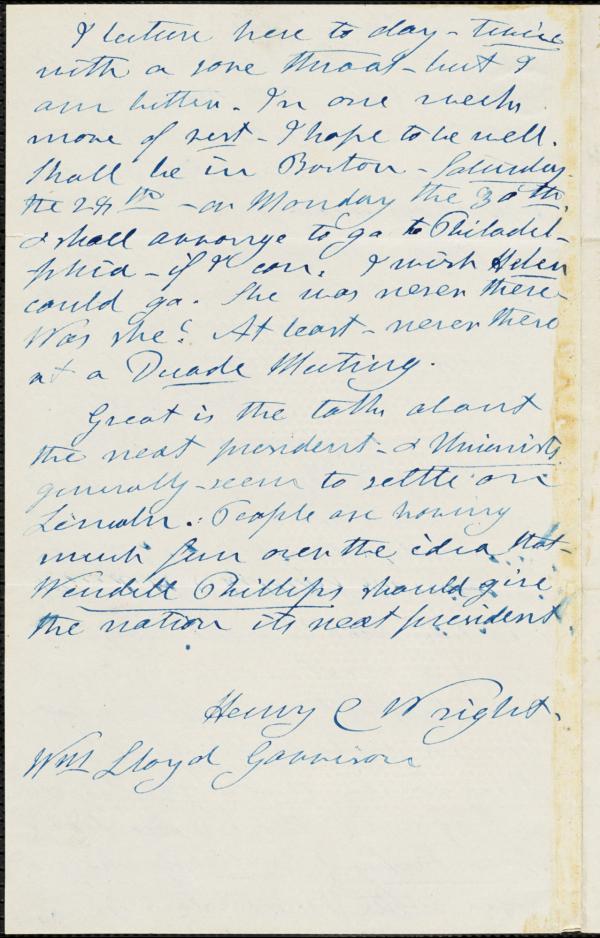 I lecture here to day - twice
with a sore throat - but I
am better. In one weeks
more of rest - I hope to be well.
Shall be in Boston - Saturday
the 28th - on Monday the 30th,
& shall arrange to go to Philadel-
phia - if I can. I wish Helen
could go. She was never there -
Was she? At least - never there
at a Decade Meeting.
Great is the talk about
the next president - & Unionists
generally - seem to settle on
Lincoln. People are having
much fun over the idea that
Wendell Phillips should give
the nation its next president.
Henry C Wright.
Wm Lloyd Garrison